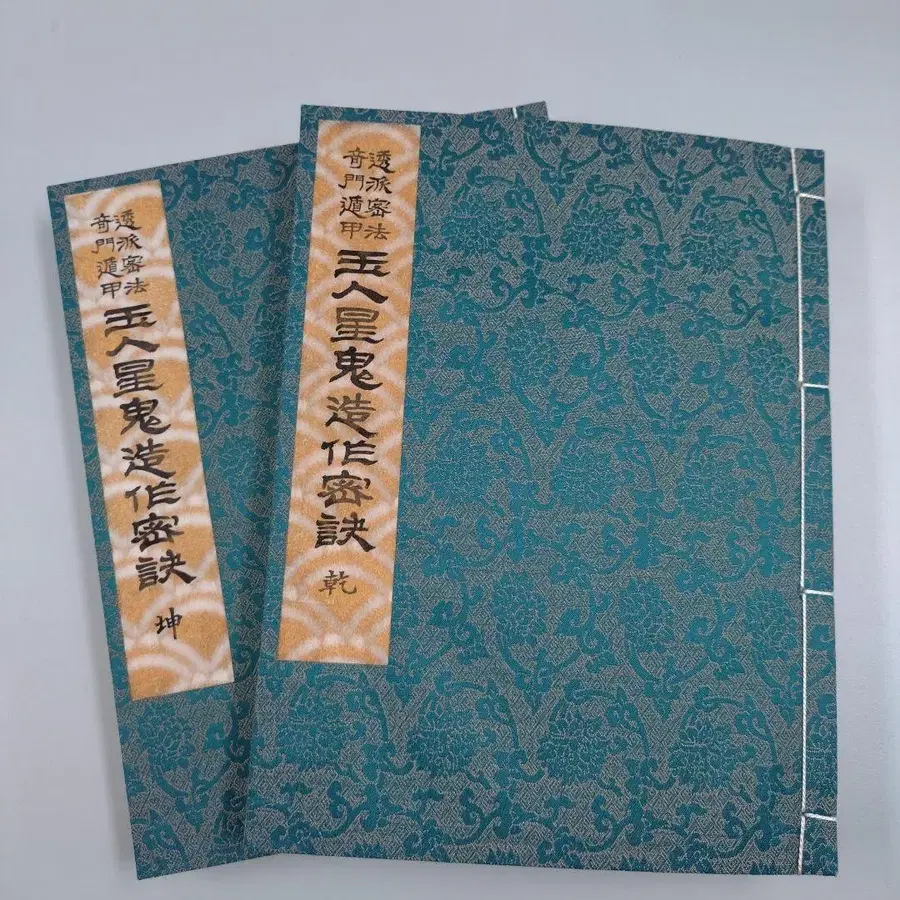 透派密法
奇門遁甲
玉人星鬼造作密訣
乾
透派密法
奇門遁甲
玉人星鬼造作密訣
坤